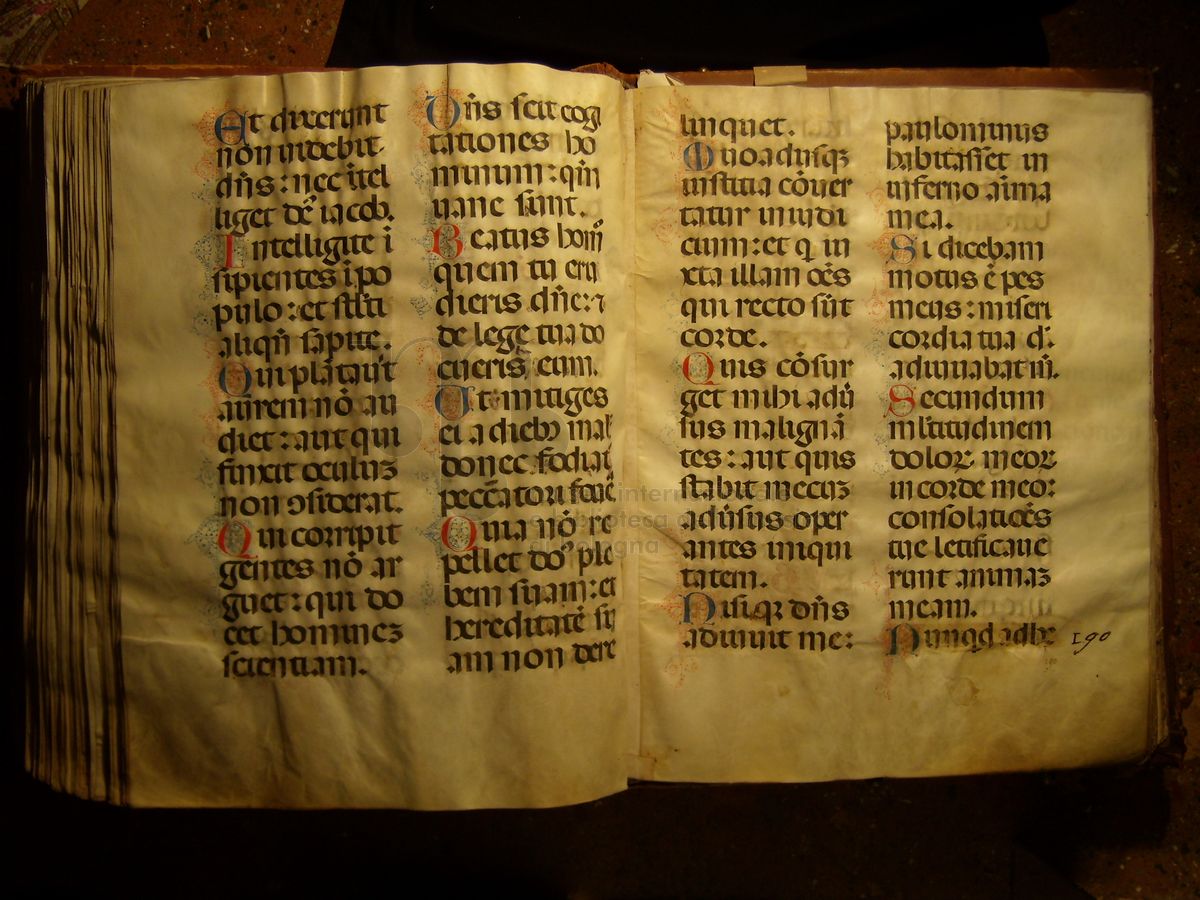 Et dixerunt
non uidebit
dn̄s : nec ītel
liget de᷒ iacob.
Intelligite ī
sipientes ī po
pulo : et stl̄ti
aliqn̄ sapite.
Qui plātauit
aurem nō au
diet : aut qui
finxit oculuꝫ
non ꝯsiderat.
Qui corripit
gentes nō ar
guet : qui do
cet hominez
scientiam.
Dn̄s scit cogi
tationes ho
minum : qm̄
uane sunt.
Beatus hom̄
quem tu eru
dieris dn̄e : ⁊
de lege tua do
cueris eum.
Ut mitiges
ei a dieb᷒ mal
donec fodiat
peccātori foue
Quia nō re
pellet do᷒ ple
bem suam : et
hereditatē su
am non dere
linquet.
Quoadusqꝫ
iustitia cōuer
tatur iudi
cium : et q iu
xta illam oēs
qui recto sūt
corde.
Quis cōsur
get mihi adū
sus maligna
tes : aut quis
stabit mecuz
adūsus oper
antes iniqui
tatem.
Nisi qꝫ dn̄s
adiuuit me :
paulominus
habitasset in
inferno aīma
mea.
Si dicebam
motus ē pes
meus : miseri
cordia tua d.
adiuuabat m̄.
Secundum
ml̄titudinem
doloꝝ meoꝝ
in corde meo :
consolatiōēs
tue letificaue
runt animaz
meam.
Nunqd adhe
190